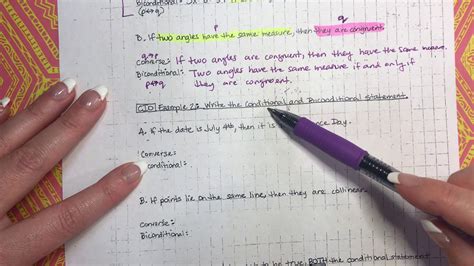 Biconditional:
(p↔q)
p q
B. If two angles have the same measure, then they are congruent.
q→p
Converse: If two angles are congruent, then they have the same measure.
Biconditional: Two angles have the same measure if and only if
p↔q they are congruent.
Example 2: Write the Conditional and Biconditional statement.
A. If the date is July 4th, then it is Day.
Converse:
conditional:
B. If points lie on the same line, then they are collinear.
Converse:
Biconditional:
to be true, BOTH the conditional statement